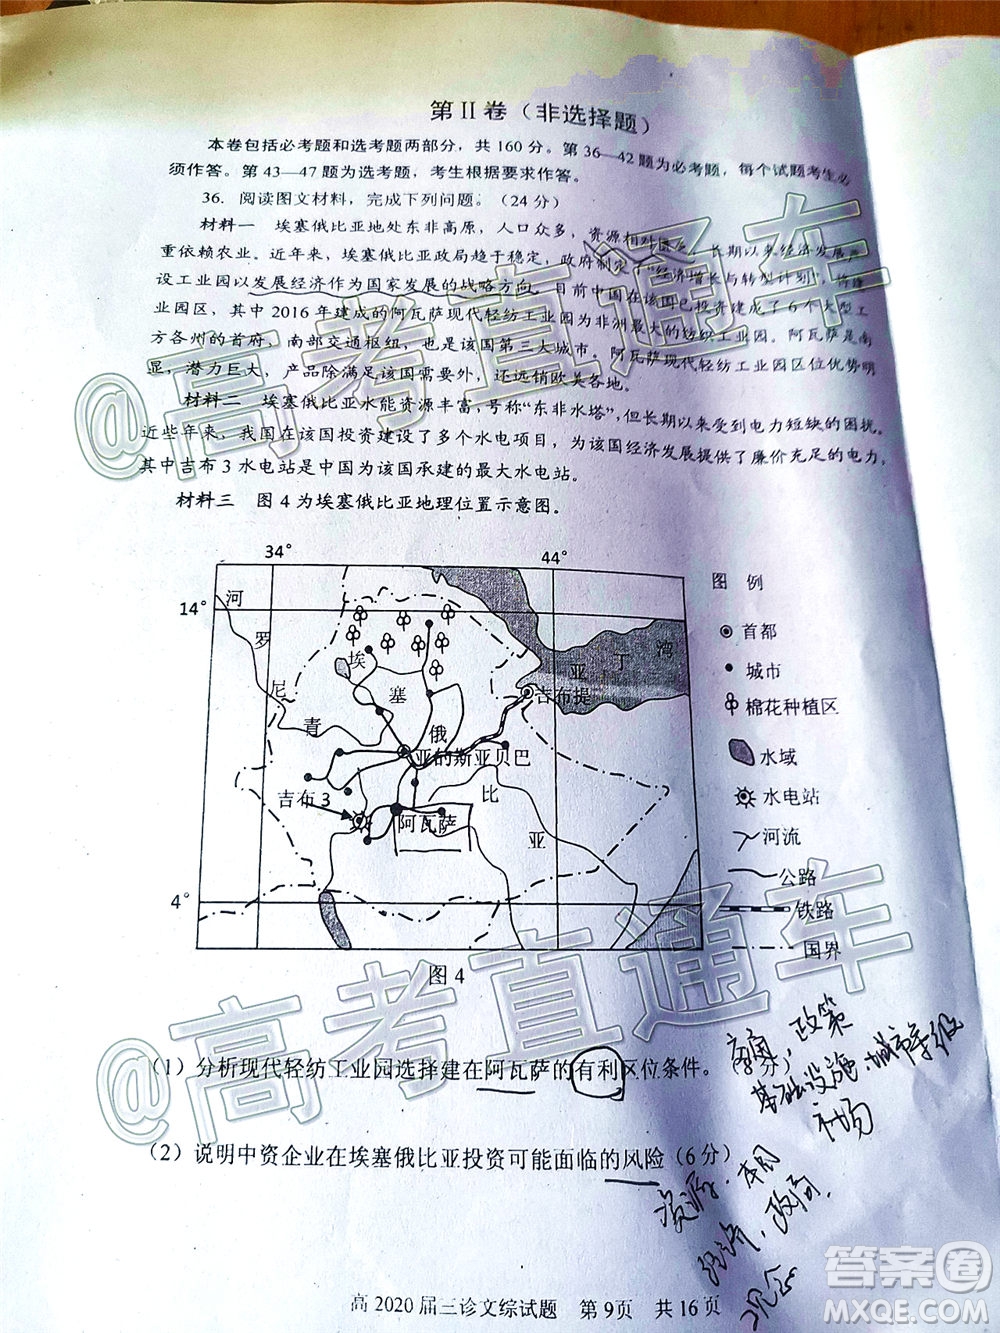 第 II 卷（非选择题）
本卷包括必考题和选考题两部分，共 160 分。第 36—42 题为必考题，每个试题考生必
须作答。第 43—47 题为选考题，考生根据要求作答。
36．阅读图文材料，完成下列问题。（24 分）
材料一　埃塞俄比亚地处东非高原，人口众多，资源相对匮乏，长期以来经济发展严
重依赖农业。近年来，埃塞俄比亚政局趋于稳定，政府制定了“经济增长与转型计划”，将建
设工业园以发展经济作为国家发展的战略方向。目前中国在该国已投资建成了 6 个大型工
业园区，其中 2016 年建成的阿瓦萨现代轻纺工业园为非洲最大的纺织工业园。阿瓦萨是南
方各州的首府，南部交通枢纽，也是该国第三大城市。阿瓦萨现代轻纺工业园区位优势明
显，潜力巨大，产品除满足该国需要外，还远销欧美各地。
材料二　埃塞俄比亚水能资源丰富，号称“东非水塔”，但长期以来受到电力短缺的困扰。
近些年来，我国在该国投资建设了多个水电项目，为该国经济发展提供了廉价充足的电力，
其中吉布 3 水电站是中国为该国承建的最大水电站。
材料三　图 4 为埃塞俄比亚地理位置示意图。
34°
44°
14°
4°
河
罗
尼
青
埃
塞
俄
比
亚
亚
丁
湾
吉布提
亚的斯亚贝巴
吉布 3
阿瓦萨
图　例
首都
城市
棉花种植区
水域
水电站
河流
公路
铁路
国界
图 4
（1）分析现代轻纺工业园选择建在阿瓦萨的有利区位条件。
分）
政策
基础设施、城市等级
市场
（2）说明中资企业在埃塞俄比亚投资可能面临的风险（6 分）
资源、
经济、政局
观念
高 2020 届三诊文综试题　第 9页　共 16 页
@高考直通车
@高考直通车
答案圈
MXQE.COM